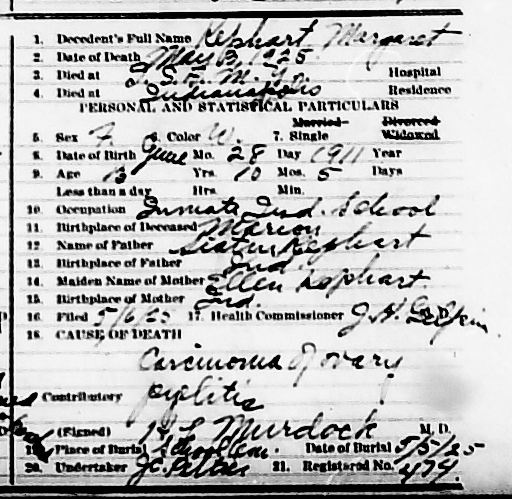 1. Decedent's Full Name Kephart Margaret
2. Date of Death May 3, 1925
3. Died at I. S. F. M. Yo. Hospital
4. Died at Indianapolis Residence
PERSONAL AND STATISTICAL PARTICULARS
5. Sex F 6. Color W. 7. Single Married Divorced Widowed
8. Date of Birth June Mo. 28 Day 1911 Year
9. Age 13 Yrs. 10 Mos. 5 Days
Less than a day Hrs. Min.
10. Occupation Inmate Ind. School
11. Birthplace of Deceased Marion
12. Name of Father Kephart
13. Birthplace of Father Ind.
14. Maiden Name of Mother Ellen Kephart
15. Birthplace of Mother Ind.
16. Filed 5/6/25 17. Health Commissioner J. H.
18. CAUSE OF DEATH
Carcinoma Ovary
Contributory pyelitis
(Signed) Murdock M. D.
19. Place of Burial School Cem. Date of Burial 5/5/25
20. Undertaker J.C. 21. Registered No. 474